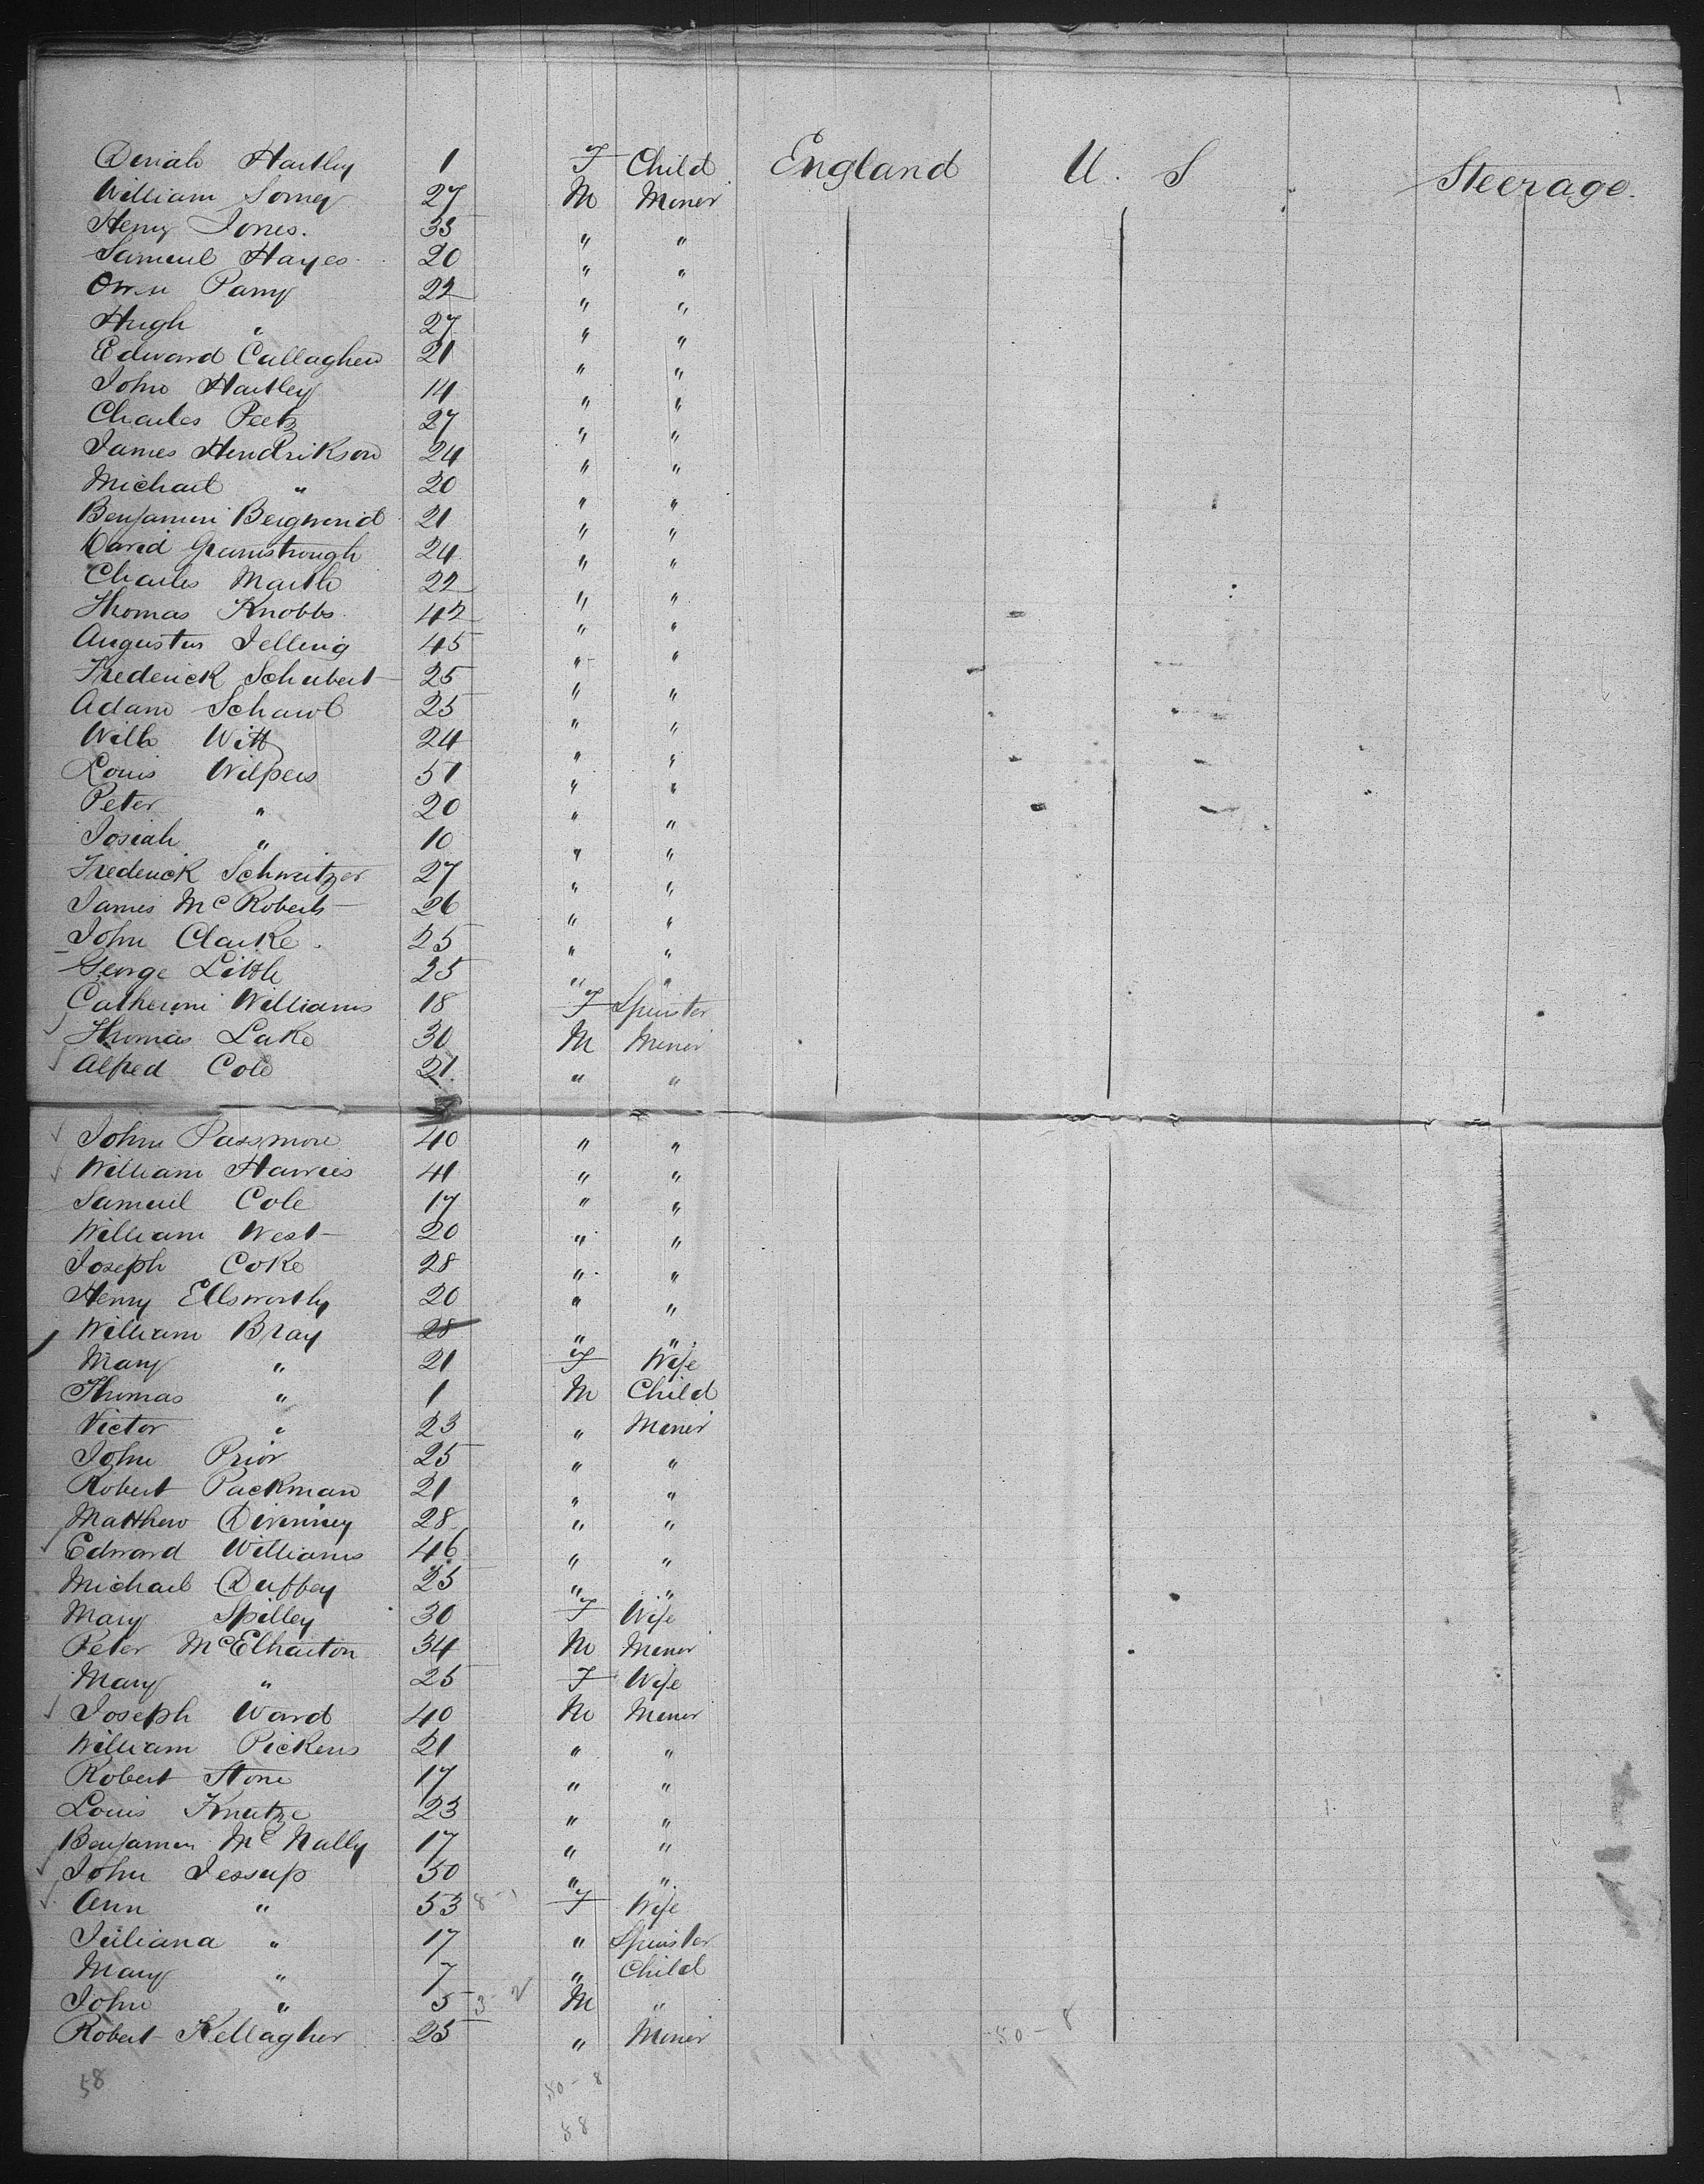 Hartley 1 F Child England U. S Steerage.
William 27 M Miner
Henry Jones. 35 " "
Samuel Hayes 20 " "
Owen Parry 22 " "
Hugh " 27 " "
Edward Callaghen 21 " "
John Hartley 14 " "
Charles Peetz 27 " "
James Hendrikson 24 " "
Michael " 20 " "
Benjamin 21 " "
David 24 " "
Charles 22 " "
Thomas Knobbs 42 " "
Augustus Jelling 45 " "
Frederick Schubert 25 " "
Adam 25 " "
Witt 24 " "
Louis Wilpers 51 " "
Peter " 20 " "
Josiah " 10 " "
Frederick Schweitzer 27 " "
James Mc Roberts 26 " "
John Clarke 25 " "
George Little 25 " "
Catherine Williams 18 F Spinster
Thomas Lake 30 M Miner
Alfred Cole 21 " "
John Passmore 40 " "
William Harries 41 " "
Samuel Cole 17 " "
William West 20 " "
Joseph Coke 28 " "
Henry Ellsworthy 20 " "
William Bray 28 " "
Mary " 21 F Wife
Thomas " 1 M Child
Victor " 23 " Miner
John Prior 25 " "
Robert Packman 21 " "
Matthew Divinney 28 " "
Edward Williams 46 " "
Michael Duffey 25 " "
Mary Spilley 30 F Wife
Peter McElhaiton 34 M Miner
Mary " 25 F Wife
Joseph Ward 40 M Miner
William Pickens 21 " "
Robert Stone 17 " "
Louis Knutze 23 " "
Benjamin Mc Nally 17 " "
John Jessup 50 " "
Ann " 53 F Wife
Juliana " 17 " Spinster
Mary " 7 " Child
John " 5 M "
Robert Kellagher 25 " Miner 50 - 8
58 50 - 8
58